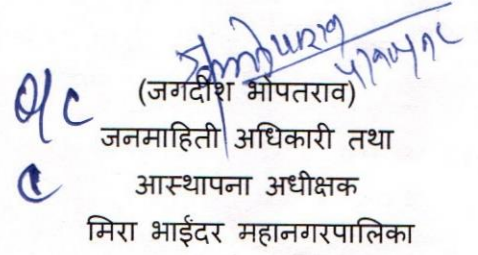 O/C
(जगदीश भोपतराव)
जनमाहिती अधिकारी तथा
आस्थापना अधीक्षक
मिरा भाईंदर महानगरपालिका